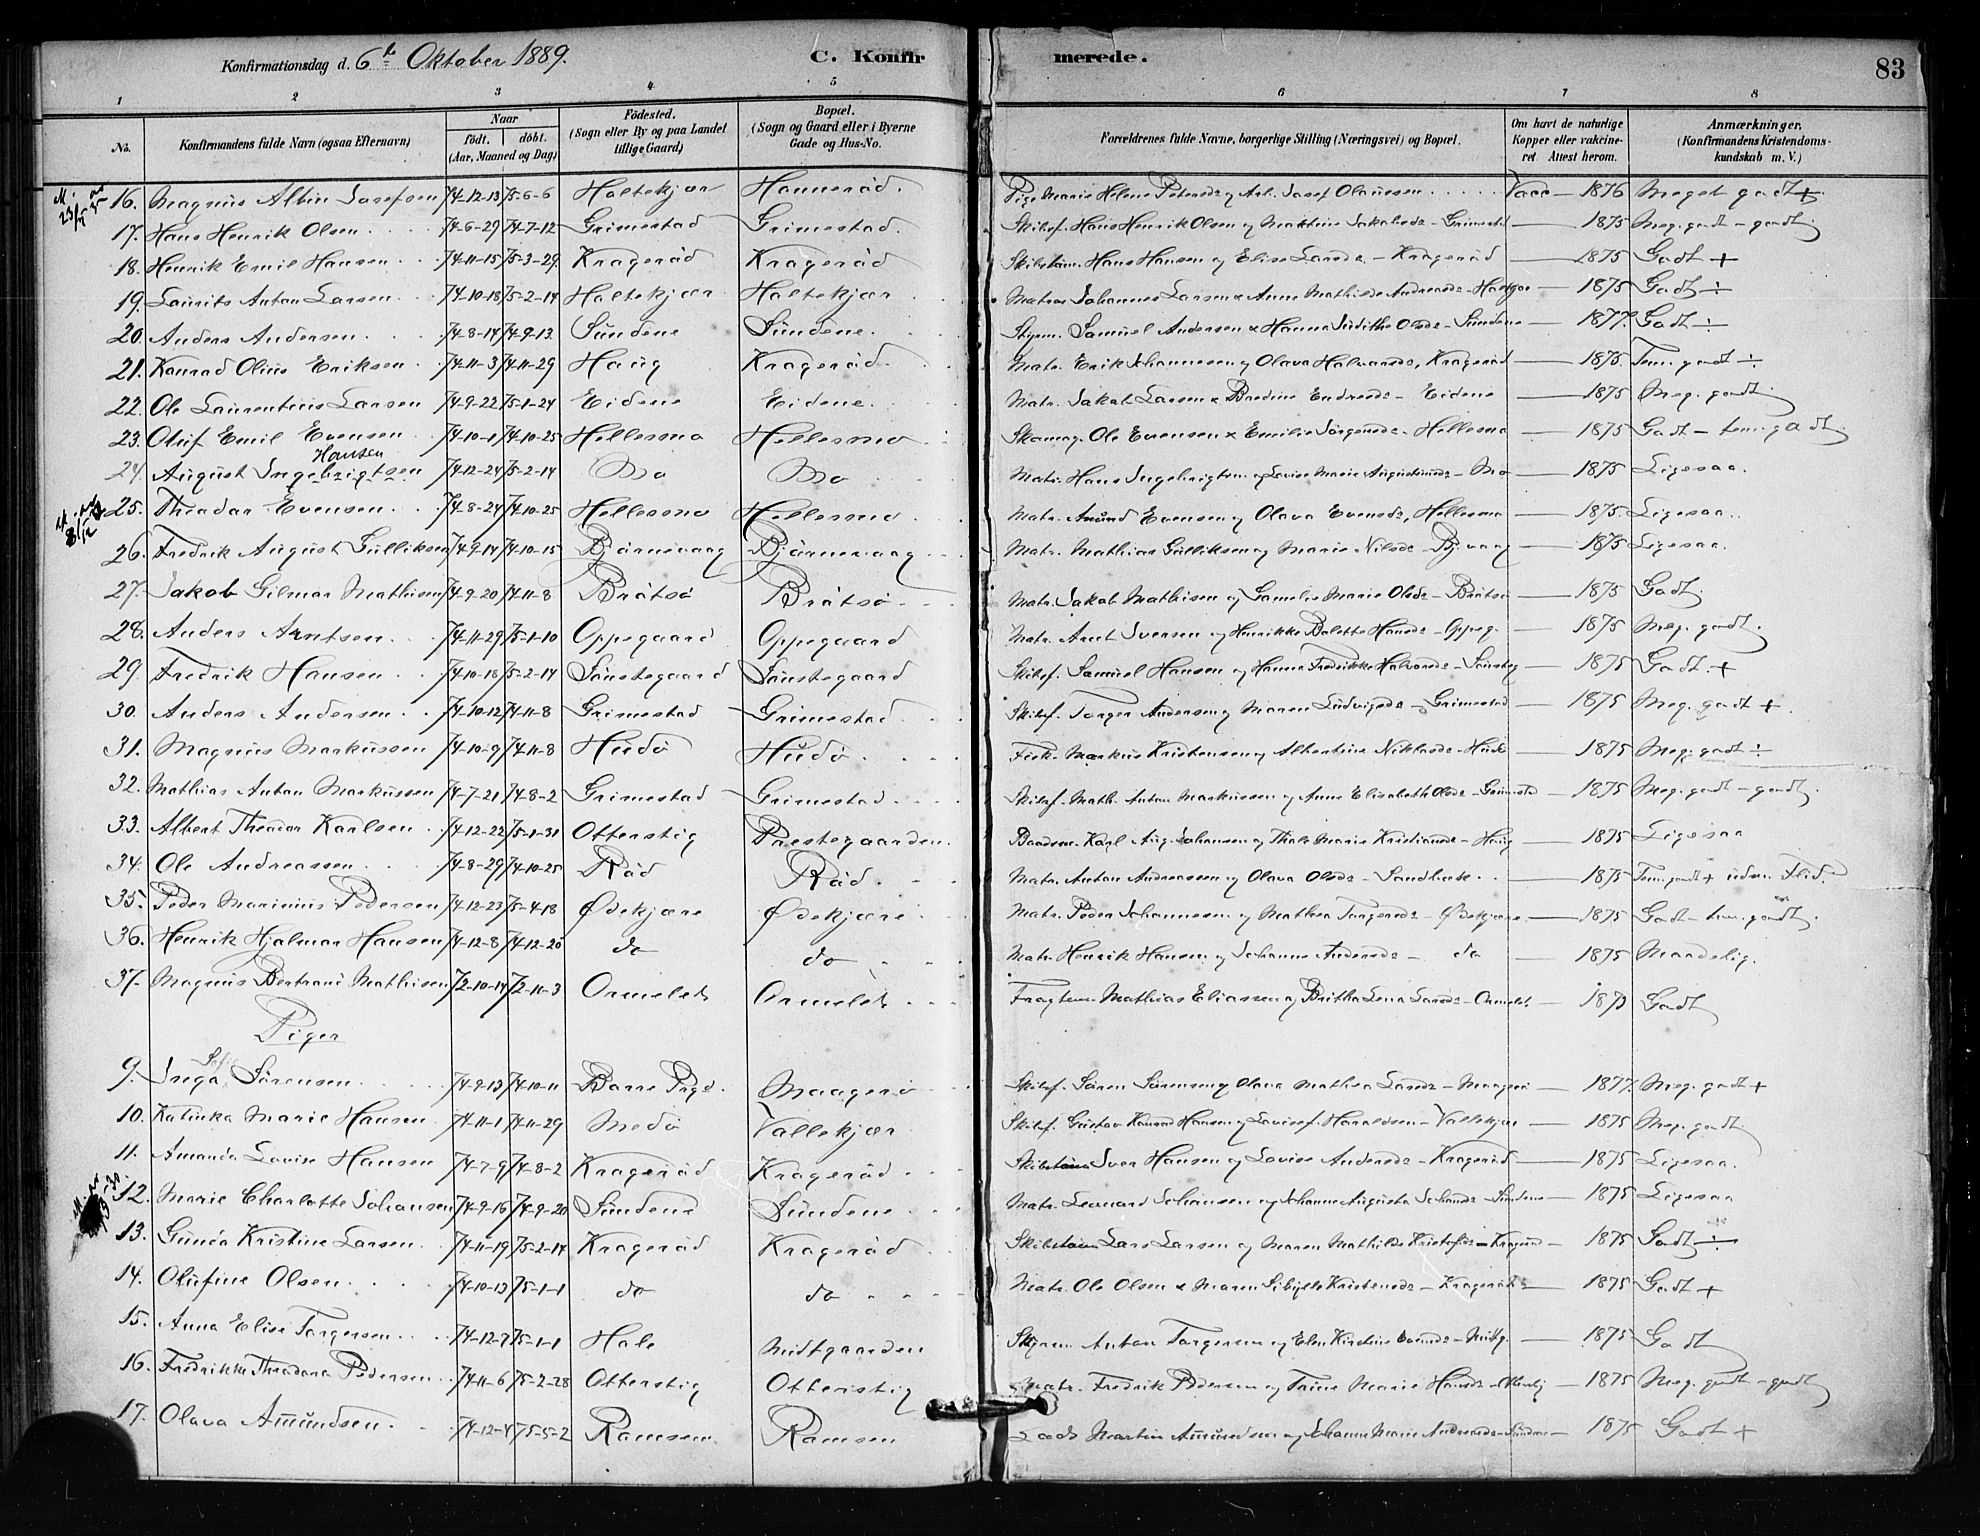 Konfirmationsdag d. 6te Oktober 1889. C. Konfir merede. 83
1 2 3 4 5 6 7 8
No. Konfirmandens fulde Navn (ogsaa Efternavn) Naar født. døbt. (Aar, Maaned og Dag) Fødested. (Sogn eller By og paa Landet tillige Gaard) Bopæl. (Sogn og Gaard eller i Byerne Gade og Hus-No. Forældrenes fulde Navne, borgerlige Stilling (Næringsvei) og Bopæl. Om havt de naturlige Kopper eller vakcineret. Attest herom. Anmærkninger. (Konfirmandens Kristendomskundskab m. V.)
16. Magnus Albin Josefsen 74-12-13 75-6-6 Holtekjær Hannerød. Pige Marie Helene Petersdr og Arb. Josef Olausen Vacc - 1876 Meget godt +
17. Hans Henrik Olsen 74-6-29 74-7-12 Grimestad Grimestad. Skibsf. Hans Henrik Olsen og Mathine Jakobsdr - Grimestd 1875 Meg. godt - godt
18. Henrik Emil Hansen 74-11-15 75-3-29 Kragerød Kragerød Skibstøm. Hans Hansen og Elise Larsdr - Kragerød 1875 Godt +
19. Laurits Anton Larsen 74-10-18 75-2-14 Holtekjær Holtekjær Matros Johannes Larsen & Anne Mathilde Andreasdr - 1875 Godt ÷
20. Anders Andersen 74-8-14 74-9-13 Sundene Sundene. Styrm. Samuel Andersen & Hanna Judithe Olsdr - Sundene 1877. Godt ÷
21. Konrad Olius Eriksen 74-11-3 74-11-29 Haug Kragerød Matr. Erik Johannesen og Olava Halvorsdr, Kragerød 1875. Tem. godt ÷
22. Ole Laurentius Larsen 74-9-22 75-1-24 Eidene Eidene. Matr. Jakob Larsen & Bredine Endresdr - Eidene 1875 Meg. godt
23. Oluf Emil Evensen 74-10-1 74-10-25 Hellesmo Hellesmo Ole Evensen & Emilie Jørgensdr - Hellesmo 1875 Godt - tem. godt
Hansen
24. August Ingebrigtsen 74-12-24 75-2-14 Mo Mo Matr. Hans Ingebrigtsen og Lovise Marie Augustinusdr - Mo 1875 Ligesaa.
25. Theodor Evensen 74-8-24 74-10-25 Hellesmo Hellesmo Matr. Amund Evensen og Olava Evensdr, Hellesmo 1875 Ligesaa.
26. Fredrik August Gulliksen 74-9-14 74-10-15 Bjørnevaag Bjørnevaag Matr. Mathias Gulliksen og Marie Nilsdr - Bj.vaag 1875 Ligesaa.
27. Jakob Gilmar Mathisen 74-9-20 74-11-8 Bråtsø Bråtsø Matr. Jakob Mathisen og Marie Olsdr - Bråtsø 1875 Godt.
28. Anders Arntsen 74-11-29 75-1-10 Oppegaard Oppegaard Matr. Arnt Iversen og Henrikke Bolette Hansdr - Oppeg. 1875 Meg. godt.
29. Fredrik Hansen 74-10-18 75-2-14 Sønstegaard Sønstegaard Skibsf. Samuel Hansen og Hanna Fredrikke Halvorsdr - Sønsteg 1875 Godt +
30. Anders Andersen 74-10-12 74-11-8 Grimestad Grimestad Skibsf. Torger Andersen og Maren Ludvigsdr - Grimestad 1875 Meg. godt +
31. Magnus Markussen 74-10-9 74-11-8 Hudø Hudø Fisk. Markus Kristensen og Albertine Niklasdr - Hudø 1875 Meg. godt ÷
32. Mathias Anton Markussen 74-7-21 74-8-2 Grimestad Grimestad Skibsf. Math. Anton Markussen og Anne Elisabeth Olsdr - Grimestd 1875 Meg. godt - godt
33. Albert Theodor Karlsen 74-12-22 75-1-31 Otterstig Prestegaarden. Baadsm. Karl Aug. Johansen og Thale Marie Kristiansdr - Haug 1875 Ligesaa
34. Ole Andreassen 74-8-29 74-10-25 Råd Råd. Matr. Anton Andreassen og Olava Olsdr - Sandbæk 1875 Tem. godt + uden Flid.
35. Peder Marinius Pedersen 74-12-23 75-4-18 Ødekjære Ødekjære Matr. Peder Johannesen og Mathea Torgersdr - Ødekjære 1875 Godt - tem. godt.
36. Henrik Hjalmar Hansen 74-12-8 74-12-20 do do Matr. Henrik Hansen og Johanne Andersdr - do 1875 Maadelig.
37. Magnus Bertrand Mathisen 72-10-14 72-11-3 Ormelet Ormelet Mathias Eliassen og Britha Lena Larsdr - Ormelet 1873 Godt
Piger
Sofie
9. Inga Sørensen 74-9-13 74-10-11 Borre Prgd. Maagerø Skibsf. Søren Sørensen og Olava Mathea Larsdr - Maagerø 1877. Meg. godt +
10. Katinka Marie Hansen 74-11-1 74-11-29 Medø Vallekjær Skibsf. Gustav Konrad Hansen og Lovise Haraldsen - Vallekjær 1875 Meg. godt
11. Amanda Lovise Hansen 74-7-9 74-8-2 Kragerød Kragerød Skibstøm. Iver Hansen og Lovise Andersdr - Kragerød 1875 Ligesaa.
12. Marie Charlotte Johansen 74-9-16 74-9-20 Sundene Sundene Matr. Leonard Johansen og Johanne Augusta Johansdr - Sundene 1875 Ligesaa
13. Gunda Kristine Larsen 74-11-19 75-2-14 Kragerød Kragerød Skibstøm. Lars Larsen og Maren Mathilde Kristofdr - Kragerød 1875 Godt ÷
14. Olufine Olsen 74-10-13 75-1-1 do do Matr. Ole Olsen & Maren Sibylle Kristensdr - Kragerød 1875 Godt +
15. Anna Elise Torgersen 74-12-7 75-1-1 Hole Midtgaarden Styrm. Anton Torgersen og Elen Kirstine Evensdr - Midtg. 1875 Godt
16. Fredrikke Theodora Pedersen 74-11-6 75-2-28 Otterstig Otterstig Matr. Fredrik Pedersen og Trine Marie Hansdr - Otterstig 1875 Meg. godt - godt
17. Olava Amundsen 74-12-4 75-5-2 Ramsen Ramsen Lods Martin Amundsen og Johanne Marie Andreasdr - Sundene 1875 Godt +